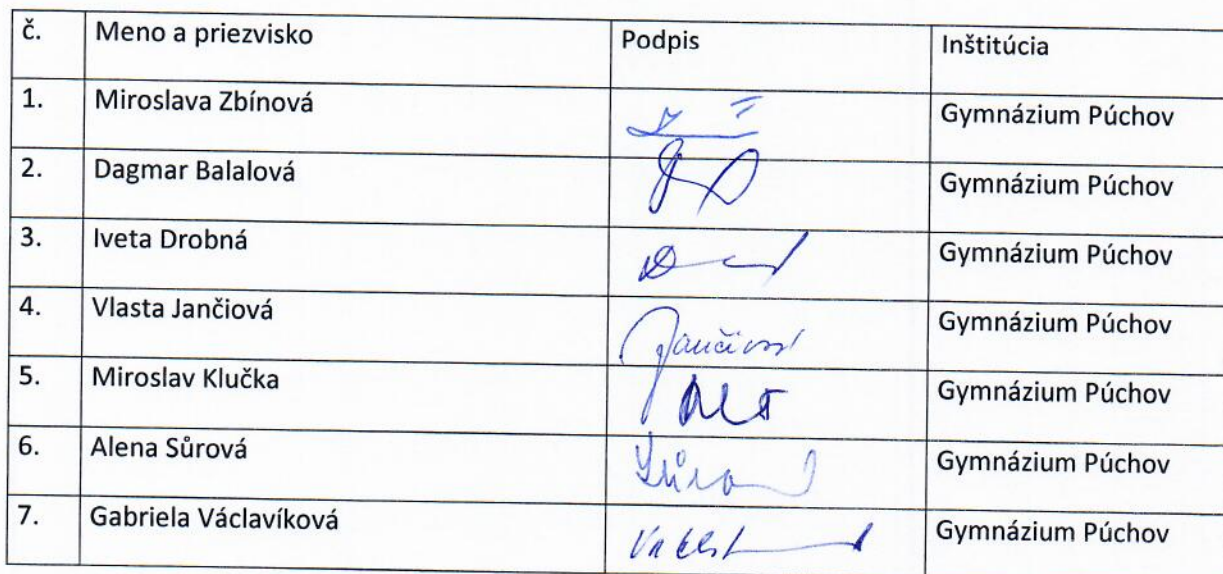 č. Meno a priezvisko Podpis Inštitúcia
1. Miroslava Zbínová Gymnázium Púchov
2. Dagmar Balalová Gymnázium Púchov
3. Iveta Drobná Gymnázium Púchov
4. Vlasta Jančiová Jančiová Gymnázium Púchov
5. Miroslav Klučka Gymnázium Púchov
6. Alena Sûrová Gymnázium Púchov
7. Gabriela Václavíková Gymnázium Púchov